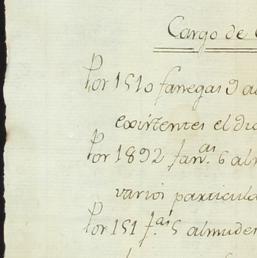 Cargo de
Por 1510 fanegas 9 al
existentes el dia
Por 1892 fan.as 6 alm
varios particula
Por 151 f.as 5 almudes